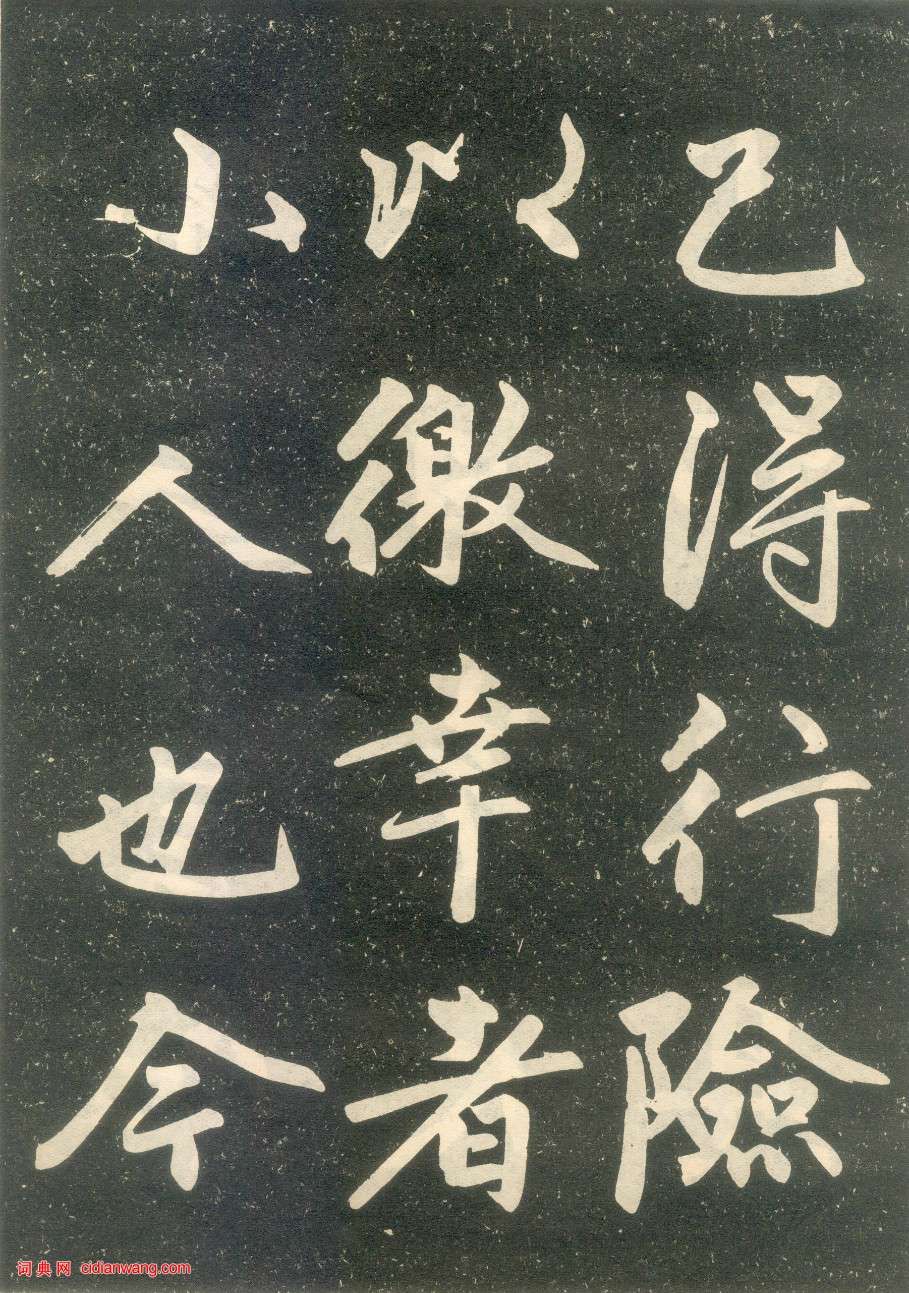 已得行險
以徼幸者
小人也今
词典网 cidianwang.com